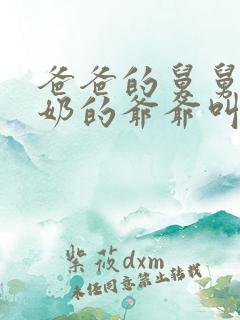 爸爸的舅舅
奶的爷爷叫
紫筱dxm
未经同意禁止转载